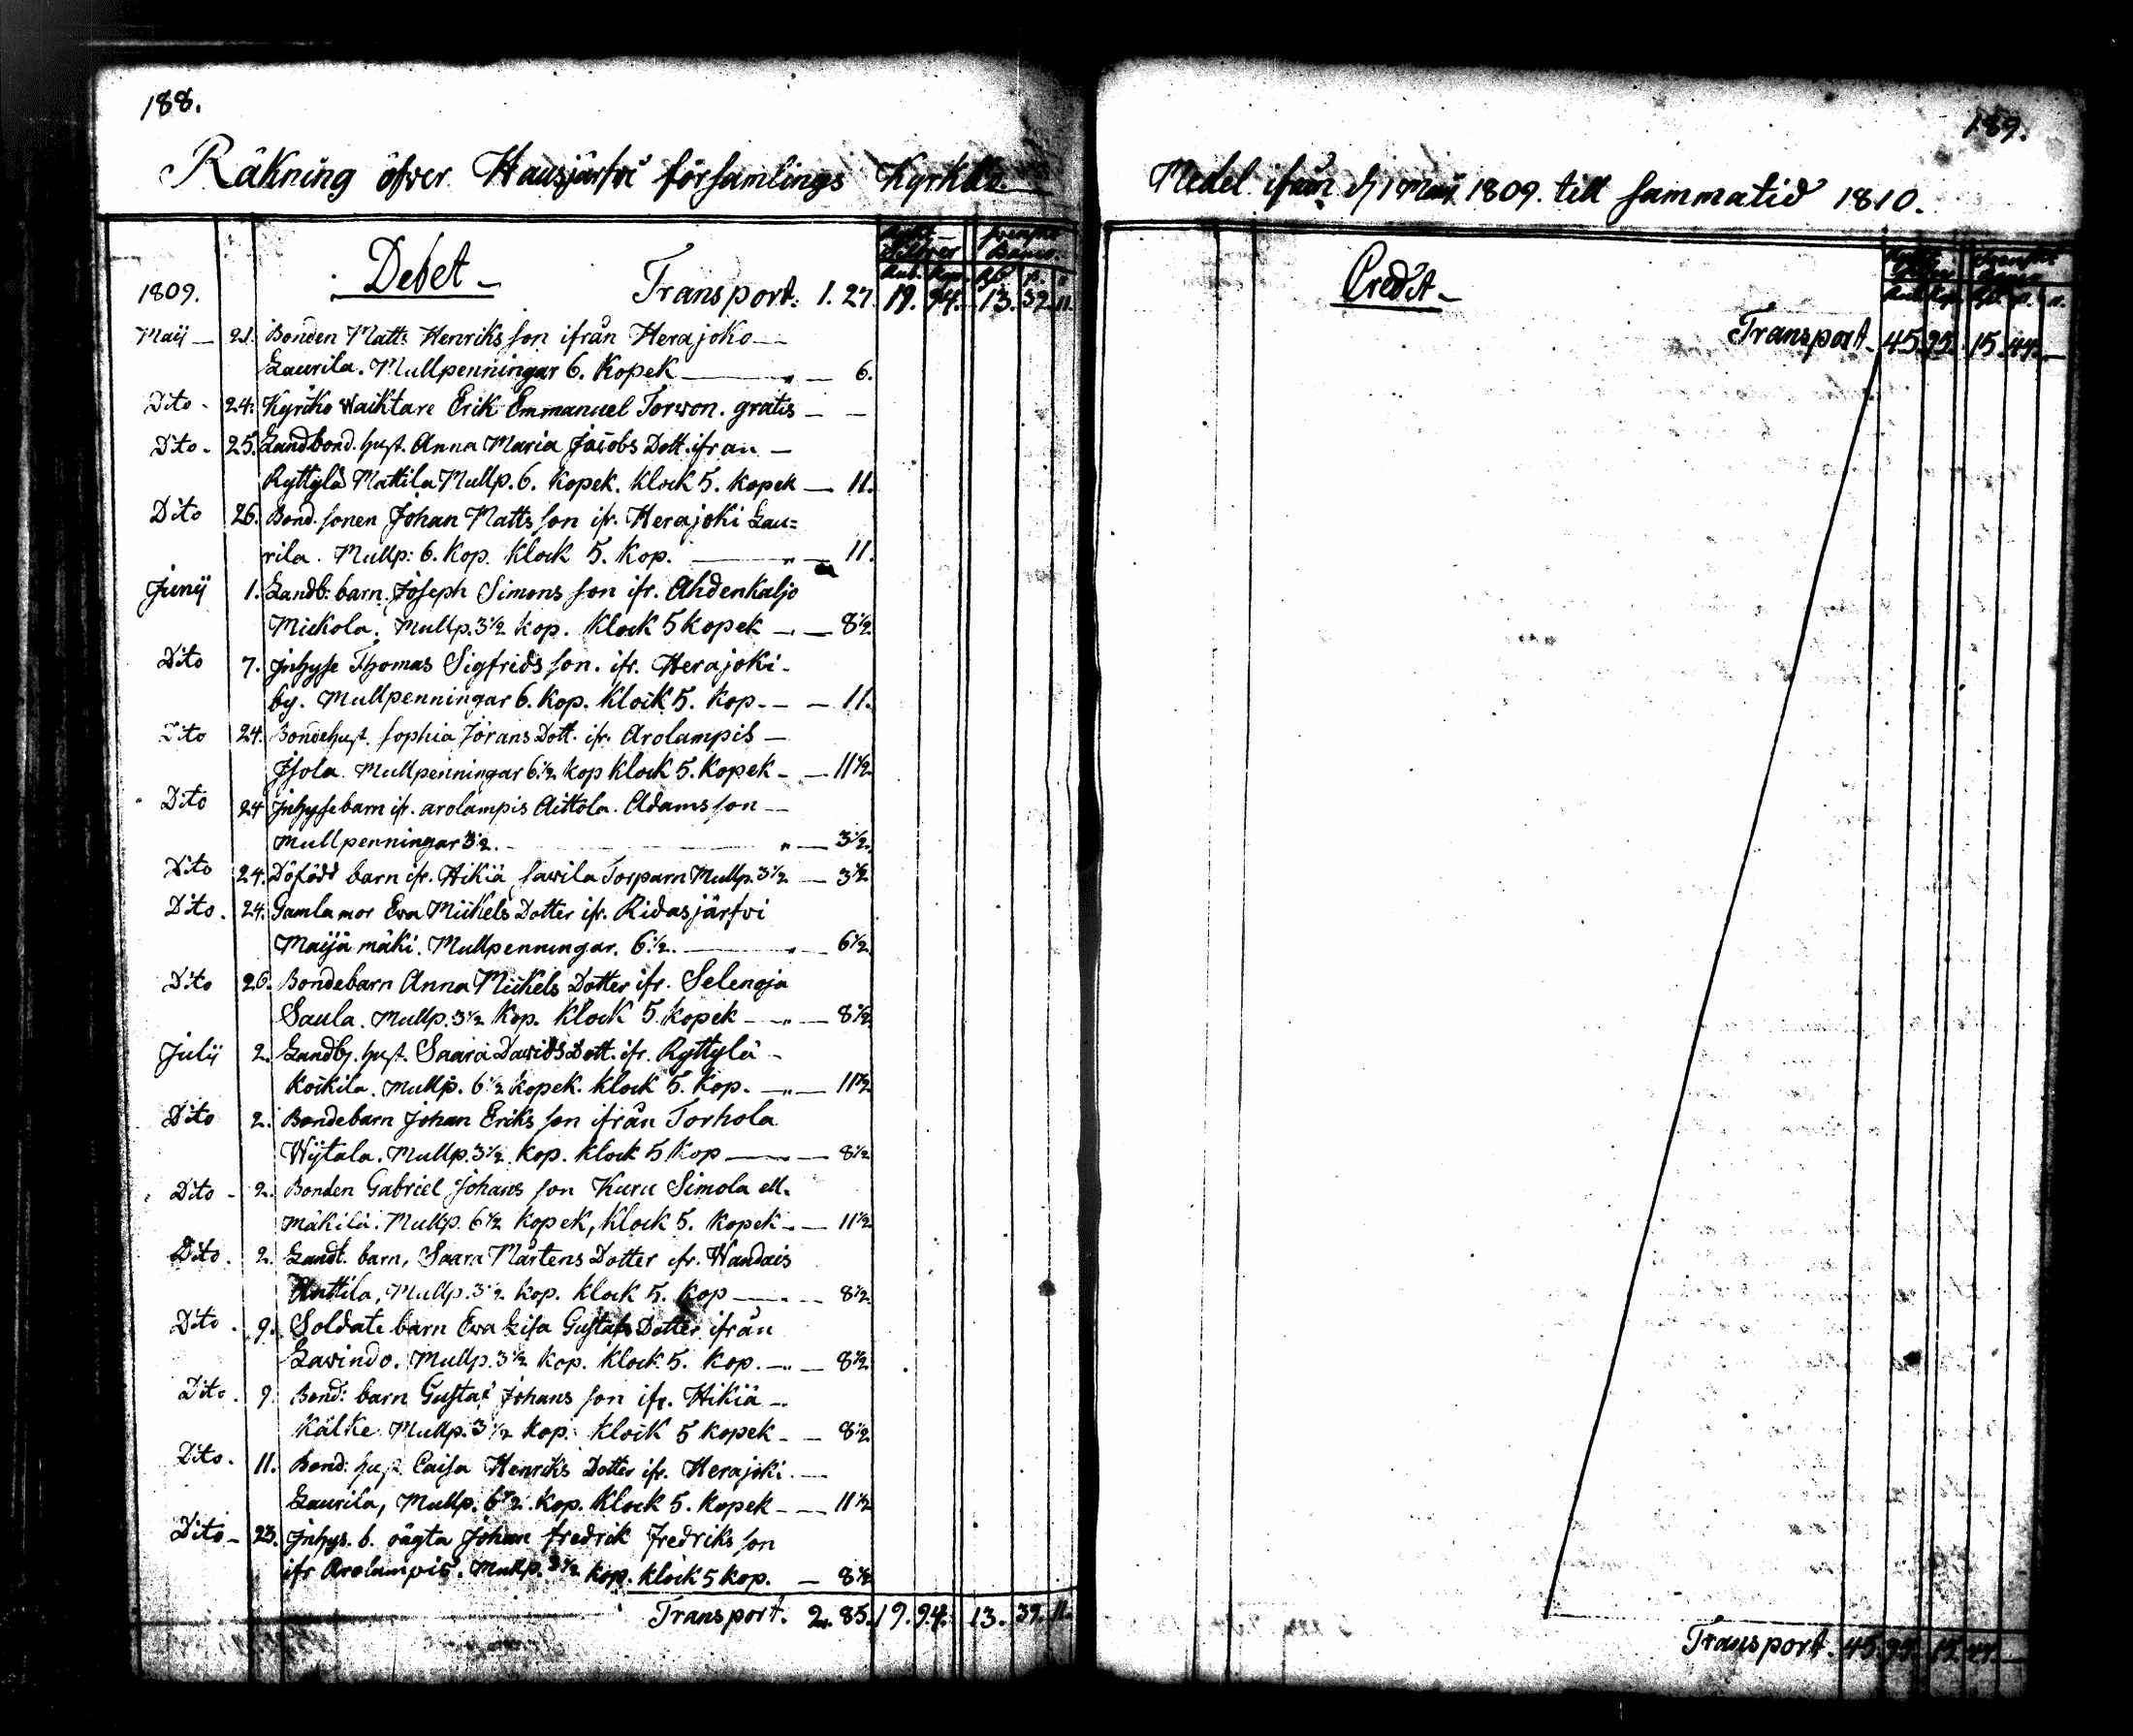 188.
Räkning öfver Hausjärfvi församlings Kyrko
Debet
Transport. 1. 27. 19. 94. 13. 32. 11.
1809.
Maij 21. Bonden Matts Henriks son ifrån Herajoko
Laurila. Mullpenningar 6. Kopek 6.
Dito 24. Kyrko Waktare Erik Emmanuel Forwon. gratis
Dito 25. Landbond. hust. Anna Maria Jacobs Dott. ifran
Ryttylä Mattila Mullp. 6. Kopek. Klock 5. Kopek 11.
Dito 26. Bond. sonen Johan Matts son ifr. Herajoki Lau=
rila. Mullp: 6. Kop. Klock 5. Kop. 11.
Junij 1. Landb: barn. Joseph Simons son ifr. Ahdenkaljo
Mickola. Mullp. 3 1/2 Kop. Klock 5 Kopek 8 1/2
Dito 7. Inhyse Thomas Sigfrids son. ifr. Herajoki
by. Mullpenningar 6. Kop. Klock 5. Kop. 11.
Dito 24. Bondehust. Sophia Jörans Dott. ifr. Arolampis
Isola. Mullpenningar 6 1/2 Kop Klock 5. Kopek 11 1/2
Dito 24 Inhysebarn ifr. arolampis Aittola. Adams son
Mullpenningar 3 1/2. 3 1/2.
Dito 24. Döfödt barn ifr. Hikiä Sawila Torparn Mullp. 3 1/2 3 1/2
Dito. 24. Gamla mor Ewa Michels Dotter ifr. Ridasjärfvi
Maijä mäki. Mullpenningar. 6 1/2. 6 1/2
Dito 26. Bondebarn Anna Michels Dotter ifr. Selenoja
Saula. Mullp. 3 1/2 Kop. Klock 5 Kopek 8 1/2
Julij 2. Landbj. hust. Saara Dawids Dott. ifr. Ryttylä
Koikila. Mullp. 6 1/2 Kopek. Klock 5. Kop. 11 1/2
Dito 2. Bondebarn Johan Eriks son ifrån Torhola
Wijtala. Mullp. 3 1/2 Kop. Klock 5 Kop 8 1/2
Dito 2. Bonden Gabriel Johans son Kuru Simola ell.
mäkilä. Mullp. 6 1/2 Kopek, Klock 5. Kopek 11 1/2
Dito. 2. Landt. barn, Saara Mårtens Dotter ifr. Wandais
Anttila, Mullp. 3 1/2 Kop. Klock 5. Kop 8 1/2
Dito. 9. Soldate barn Ewa Lisa Gustafs Dotter ifrån
Lawindo. Mullp. 3 1/2 Kop. Klock 5. Kop. 8 1/2
Dito. 9. Bond: barn Gustaf Johans son ifr. Hikiä
Kälke Mullp. 3 1/2 Kop. Klock 5 Kopek 8 1/2
Dito. 11. Bond: hust. Caisa Henriks Dotter ifr. Herajoki.
Laurila, Mullp. 6 1/2 Kop. Klock 5. Kopek 11 1/2
Dito 23. Inhys. b. oägta Johan fredrik fredriks son
ifr Arolampis. Mullp. 3 1/2 Kop. Klock 5 Kop. 8 1/2
Transport. 2. 85. 19. 94. 13. 32. 11.
189.
Medel ifrån d 1 Maij 1809. till sammatid 1810.
Credit
Transport 45. 95. 15. 44.
Transport. 45. 95. 15. 44.